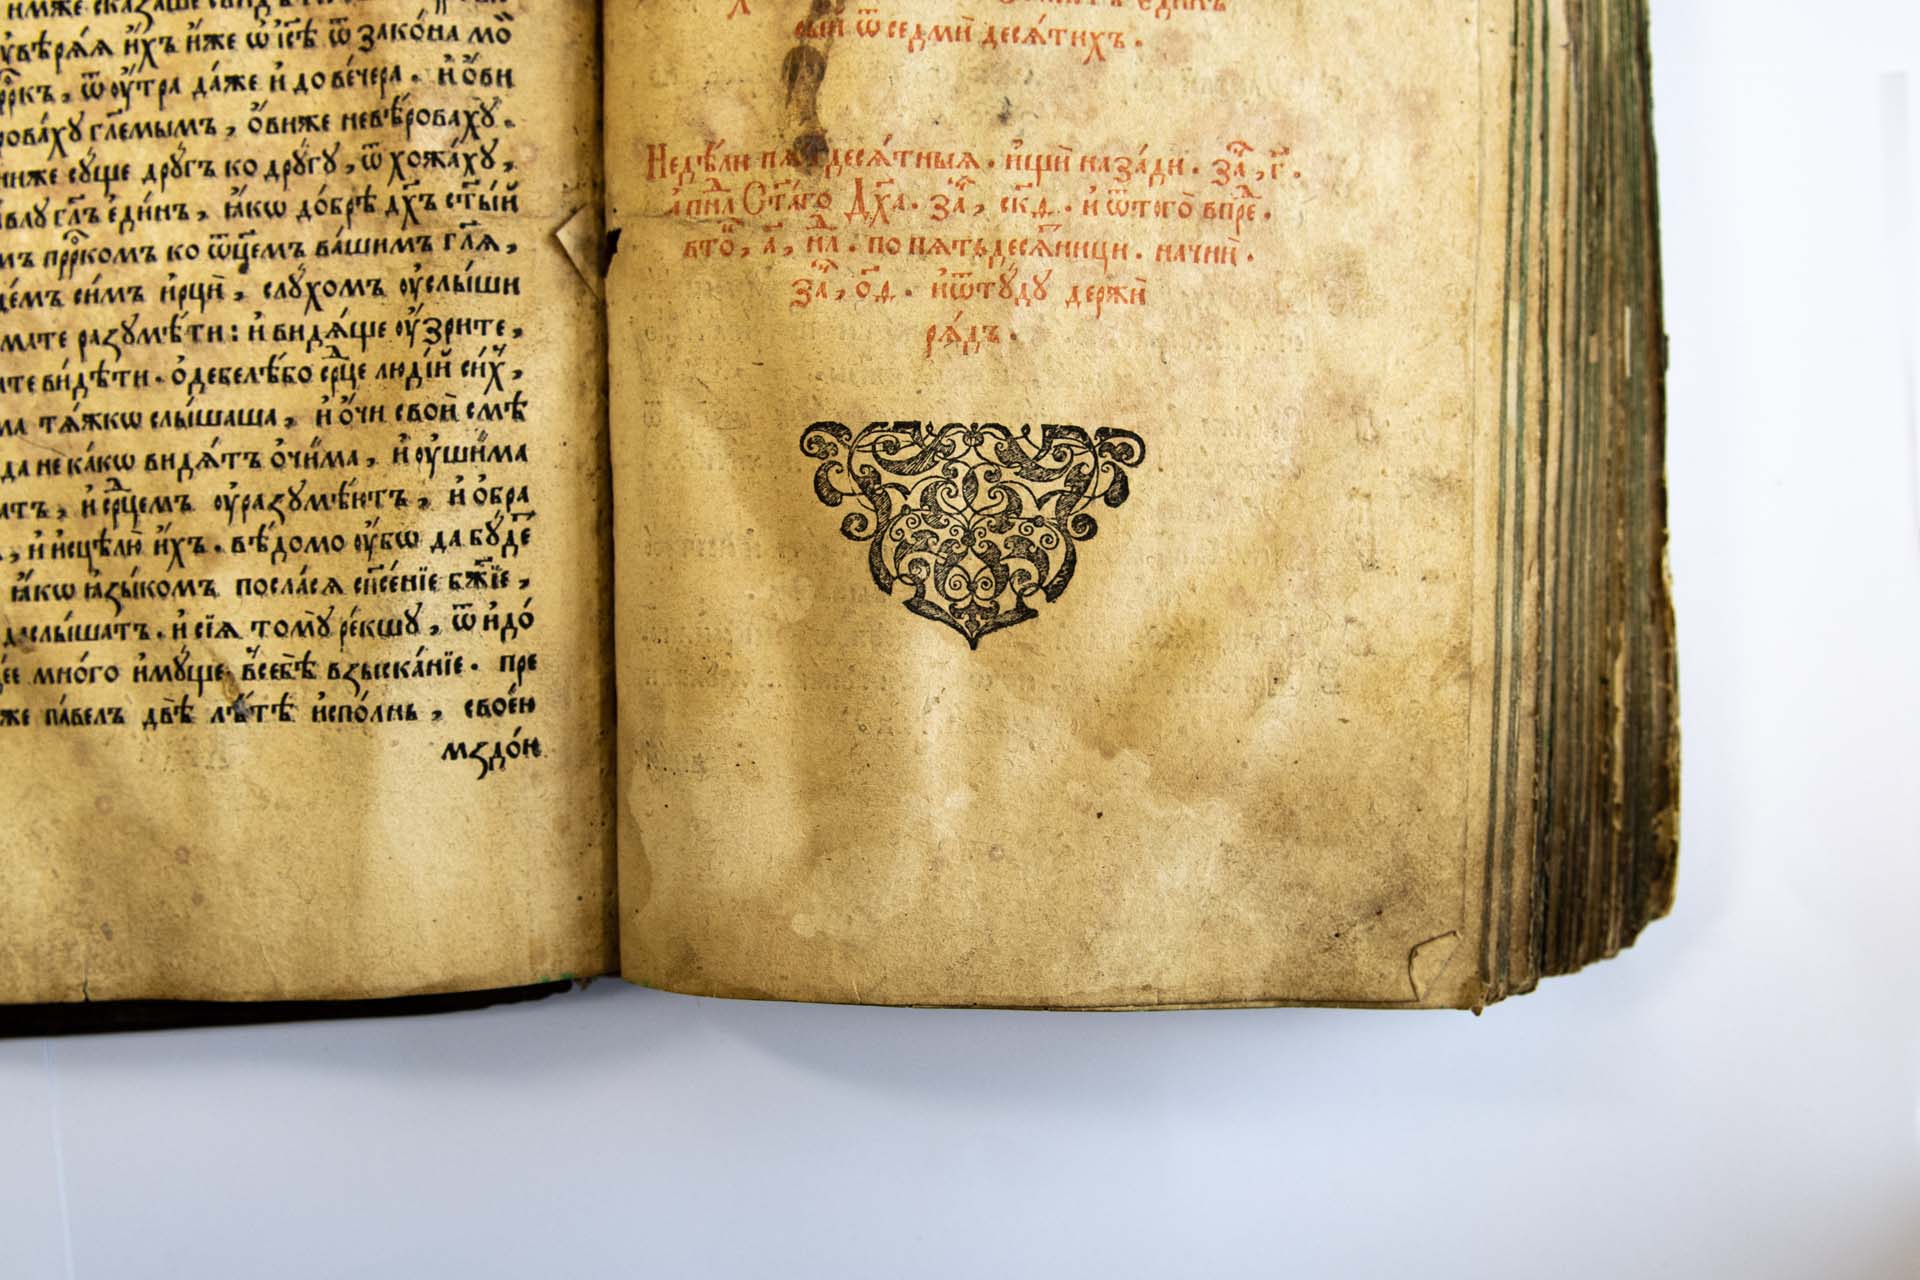 имже сказаше
ꙋ҆вѣрѧ́ѧ и҆́хъ и҆́же ѡ҆ і҆с҃ѣ ѿ зако́на мѡ
ррⷪ҇къ, ѿ ᲂу҆́тра да́же и҆ до ве́чера. и҆ ѻ҆́ви
рова́хꙋ гл҃емымъ, ѻ҆́виже невѣ́ровахꙋ.
ниже сꙋ́ще дрꙋ́гъ ко дрꙋ́гꙋ, ѿхожа́хꙋ,
влꙋ гл҃ъ є҆ди́нъ, ꙗ҆́кѡ до́брѣ дх҃ъ ст҃ы́й
мъ прⷪ҇ркомъ ко ѻ҆тц҃емъ ва́шимъ гл҃ѧ,
демъ си́мъ и҆ рцы̀, слꙋ́хомъ ᲂу҆слы́ши
мате разꙋмѣ́ти: и҆ ви́дѧще ᲂу҆́зрите,
ате ви́дѣти. ѻ҆дебелѣ́бо срⷣце люді́й си́хъ,
ма тѧ́жкѡ слы́шаша, и҆ ѻ҆́чи своѝ смѣ
да не ка́кѡ ви́дѧтъ ѻ҆чи́ма, и҆ ᲂу҆ши́ма
атъ, и҆ срⷣцемъ ᲂу҆разꙋмѣ́ютъ, и҆ ѻ҆бра
, и҆ и҆сцѣлю̀ и҆́хъ. вѣ́домо ᲂу҆́бѡ да бꙋ́де
ꙗ҆́кѡ ꙗ҆зы́комъ посла́сѧ сп҃се́нїе бж҃їе,
слы́шатъ. и҆ сїѧ̀ томꙋ̀ ре́кшꙋ, ѿидо́
мно́го и҆мꙋ́ще в себѣ̀ взыска́нїе. пре
же па́велъ двѣ̀ лѣ́тѣ и҆спо́лнь, свое́ю
мздо́ю
ѿ седми́ десѧ́тихъ.
Недѣ́ли пѧтдесѧ́тныѧ. и҆щѝ наза́ди. заⷱ҇, г҃.
а҆пⷭ҇л Ст҃а́го Дх҃а. заⷱ҇, ск҃д. и҆ ѿ того̀ впреⷣ.
втоⷪ, а҃, нⷣл. по пѧтьдесѧ́тници. начнѝ.
заⷱ҇, ѻ҃д. и҆ ѿтꙋ́дꙋ держѝ
рѧ́дъ.